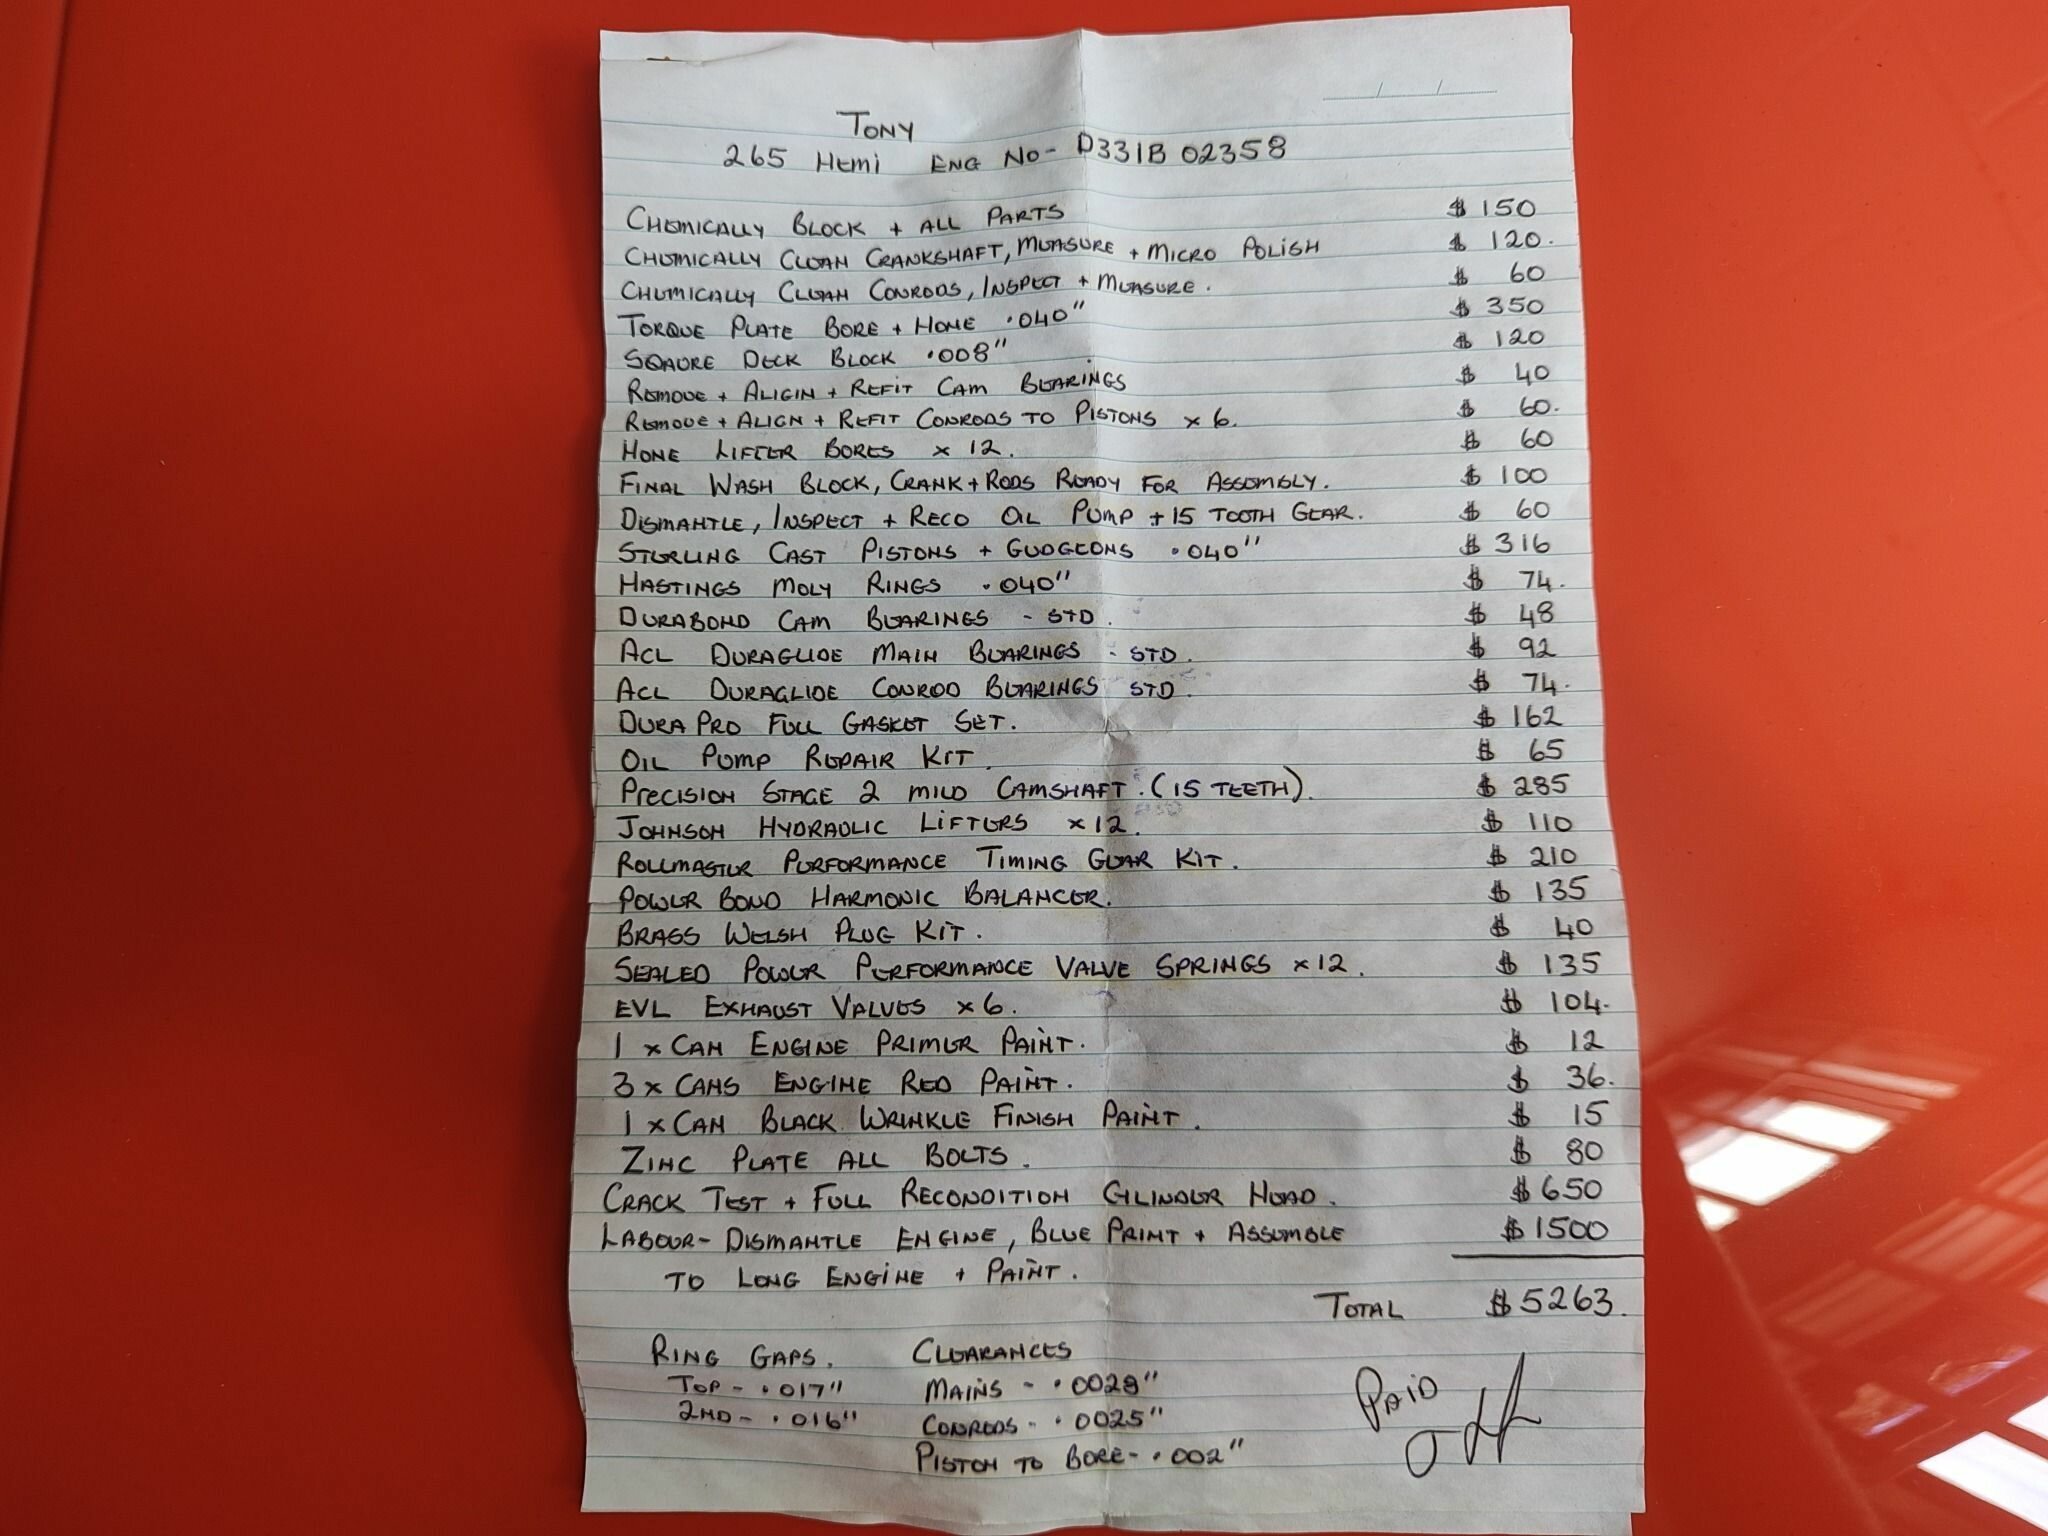 TONY
265 HEMI ENG NO- D331B 02358
CHEMICALLY BLOCK + ALL PARTS $ 150
CHEMICALLY CLEAN CRANKSHAFT, MEASURE + MICRO POLISH $ 120.
CHEMICALLY CLEAN CONRODS, INSPECT + MEASURE. $ 60
TORQUE PLATE BORE + HONE .040" $ 350
SQAURE DECK BLOCK .008" $ 120
REMOVE + ALIGIN + REFIT CAM BEARINGS $ 40
REMOVE + ALIGN + REFIT CONRODS TO PISTONS x 6. $ 60.
HONE LIFTER BORES x 12. $ 60
FINAL WASH BLOCK, CRANK + RODS READY FOR ASSEMBLY. $ 100
DISMANTLE, INSPECT + RECO OIL PUMP + 15 TOOTH GEAR. $ 60
STERLING CAST PISTONS + GUDGEONS .040" $ 316
HASTINGS MOLY RINGS .040" $ 74.
DURABOND CAM BEARINGS - STD. $ 48
ACL DURAGLIDE MAIN BEARINGS - STD. $ 92
ACL DURAGLIDE CONROD BEARINGS STD. $ 74.
DURA PRO FULL GASKET SET. $ 162
OIL PUMP REPAIR KIT. $ 65
PRECISION STAGE 2 MILD CAMSHAFT. (15 TEETH). $ 285
JOHNSON HYDRAULIC LIFTERS x 12. $ 110
ROLLMASTER PERFORMANCE TIMING GEAR KIT. $ 210
POWER BOND HARMONIC BALANCER. $ 135
BRASS WELSH PLUG KIT. $ 40
SEALED POWER PERFORMANCE VALVE SPRINGS x 12. $ 135
EVL EXHAUST VALVES x 6. $ 104.
1 x CAN ENGINE PRIMER PAINT. $ 12
3 x CANS ENGINE RED PAINT. $ 36.
1 x CAN BLACK WRINKLE FINISH PAINT. $ 15
ZINC PLATE ALL BOLTS. $ 80
CRACK TEST + FULL RECONDITION CILINDER HEAD. $ 650
LABOUR - DISMANTLE ENGINE, BLUE PRINT + ASSEMBLE $ 1500
TO LONG ENGINE + PAINT.
TOTAL $ 5263.
RING GAPS. CLEARANCES
TOP - .017" MAINS - .0028"
2ND - .016" CONRODS - .0025"
PISTON TO BORE - .002"
PAID